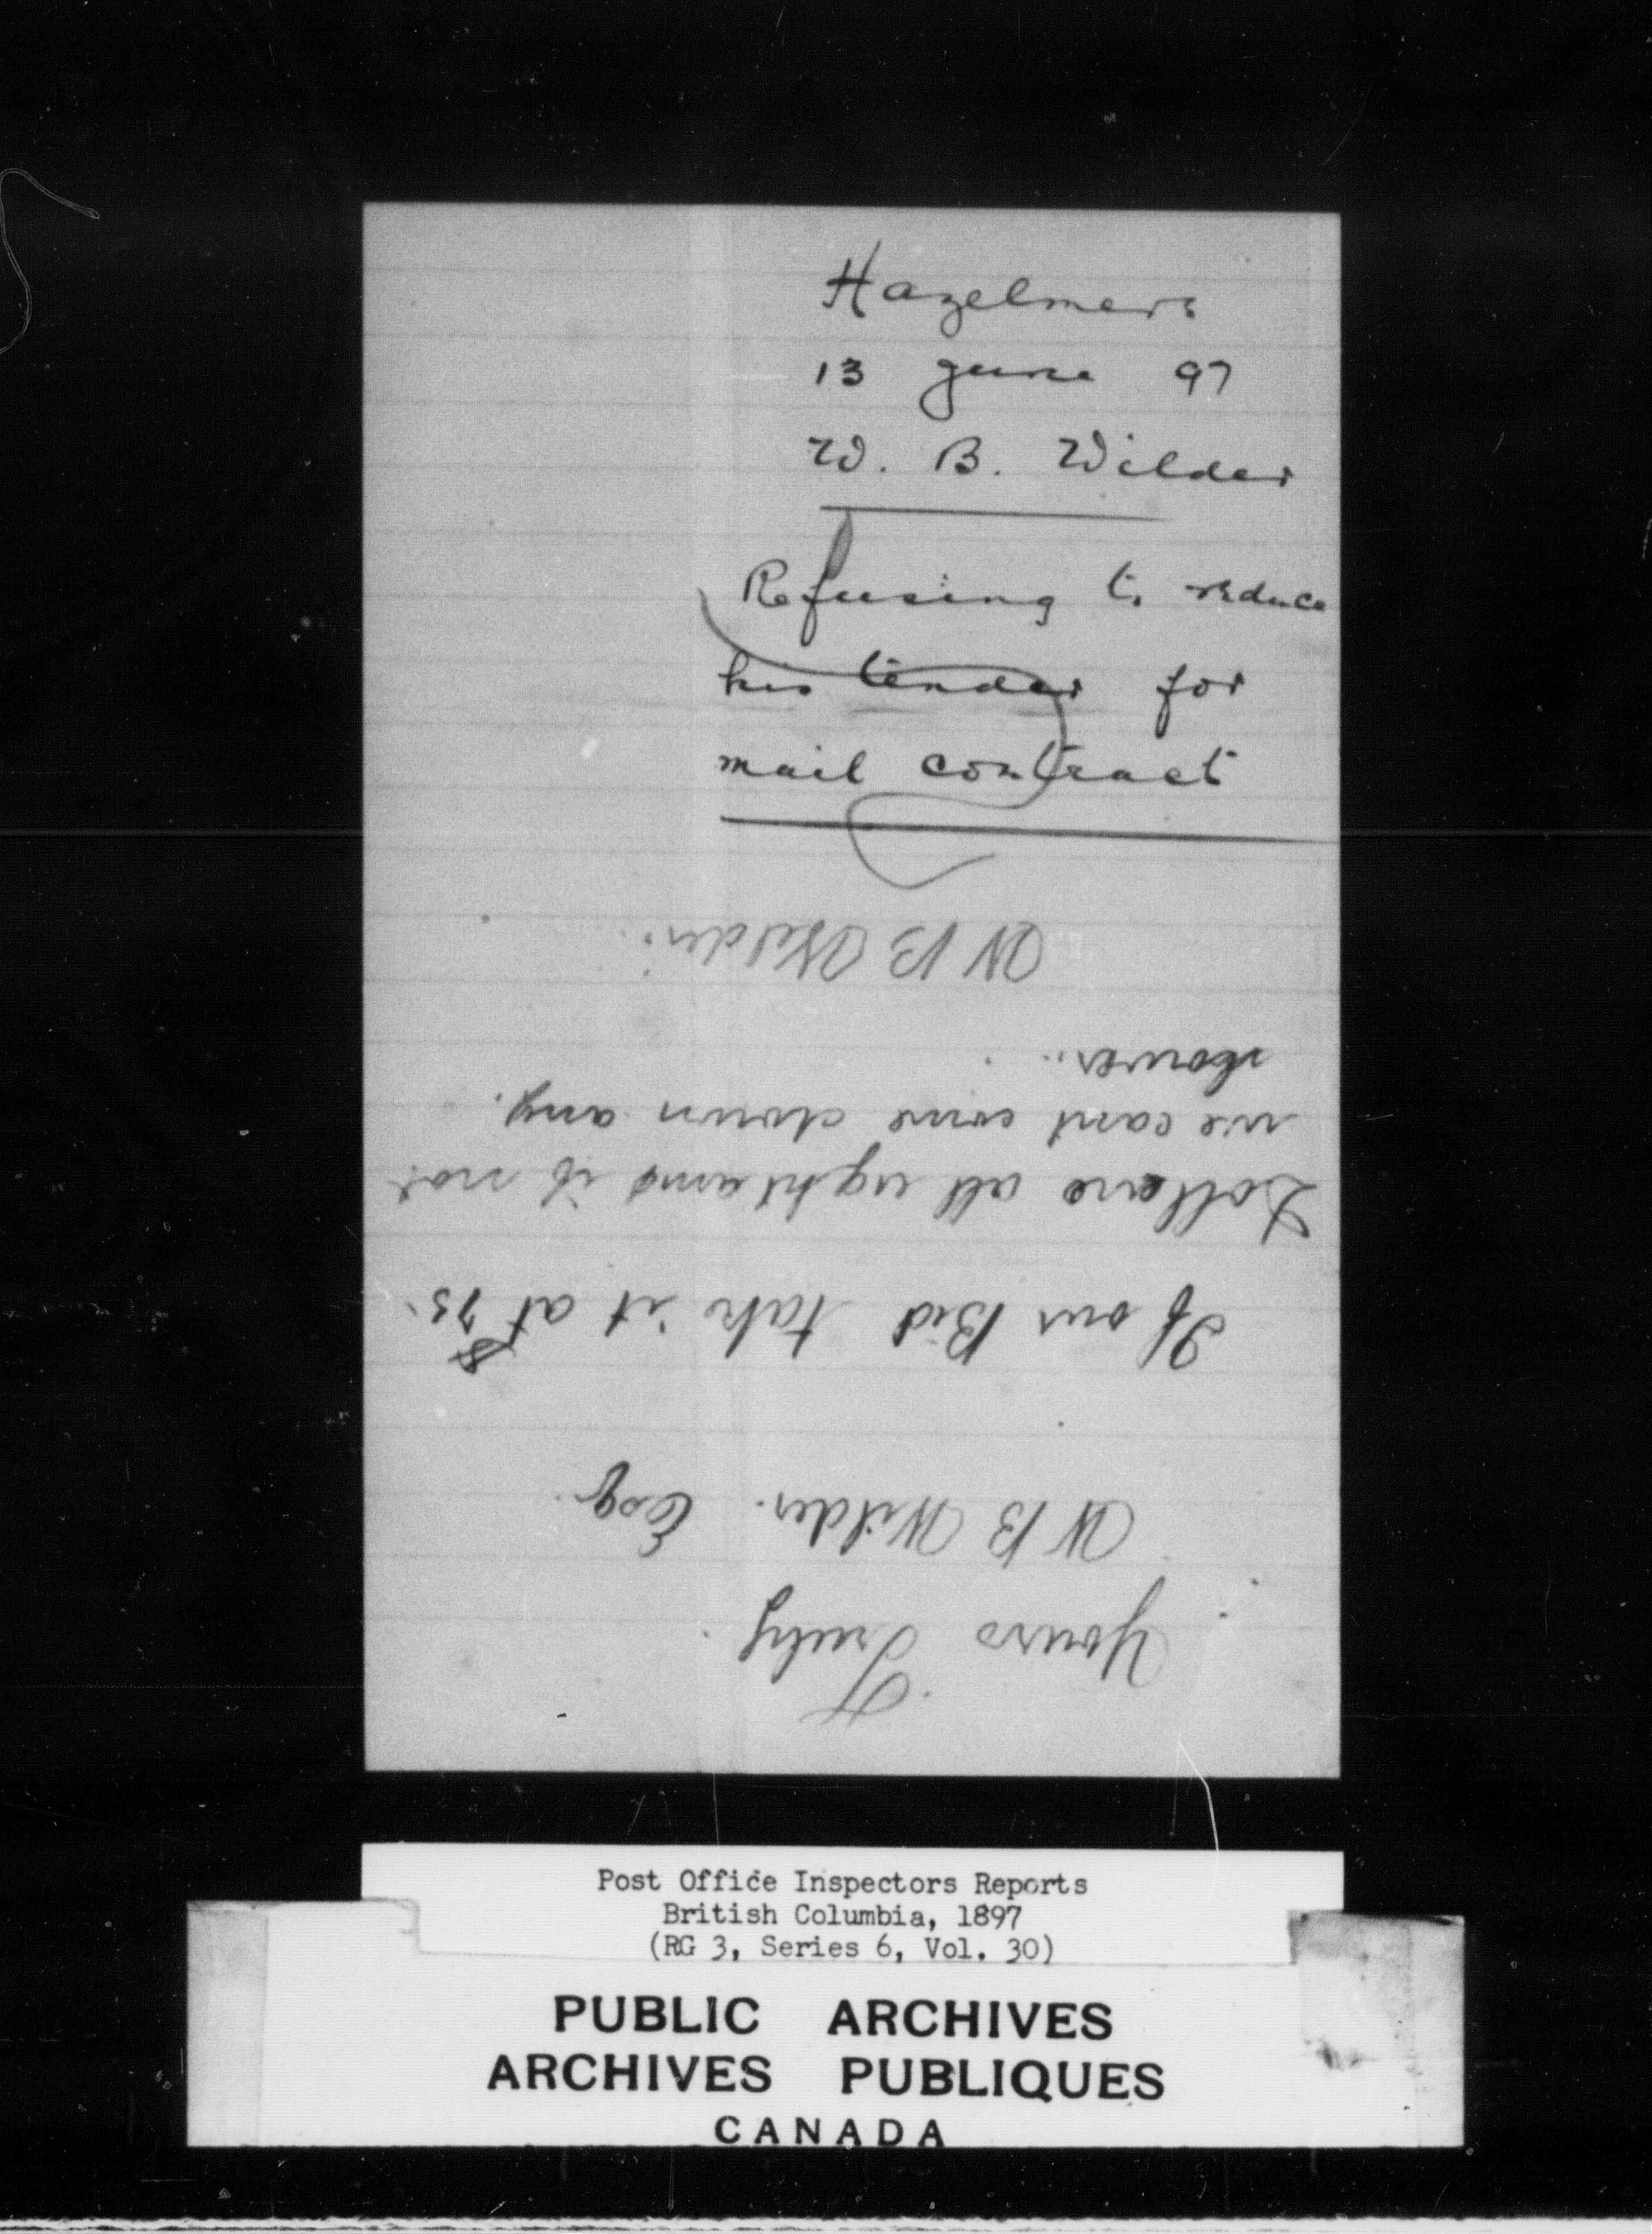 Hazelmere
13 June 97
W. B. Wilder
Refusing to reduce
his tender for
mail contract
Yours Truly
W B Wilder. Esq
If our Bid take it at $75.
Dollars all right and if not
we cant come down any.
lower.
W B Wilder.
Post Office Inspectors Reports
British Columbia, 1897
(RG 3, Series 6, Vol. 30)
PUBLIC ARCHIVES
ARCHIVES PUBLIQUES
CANADA